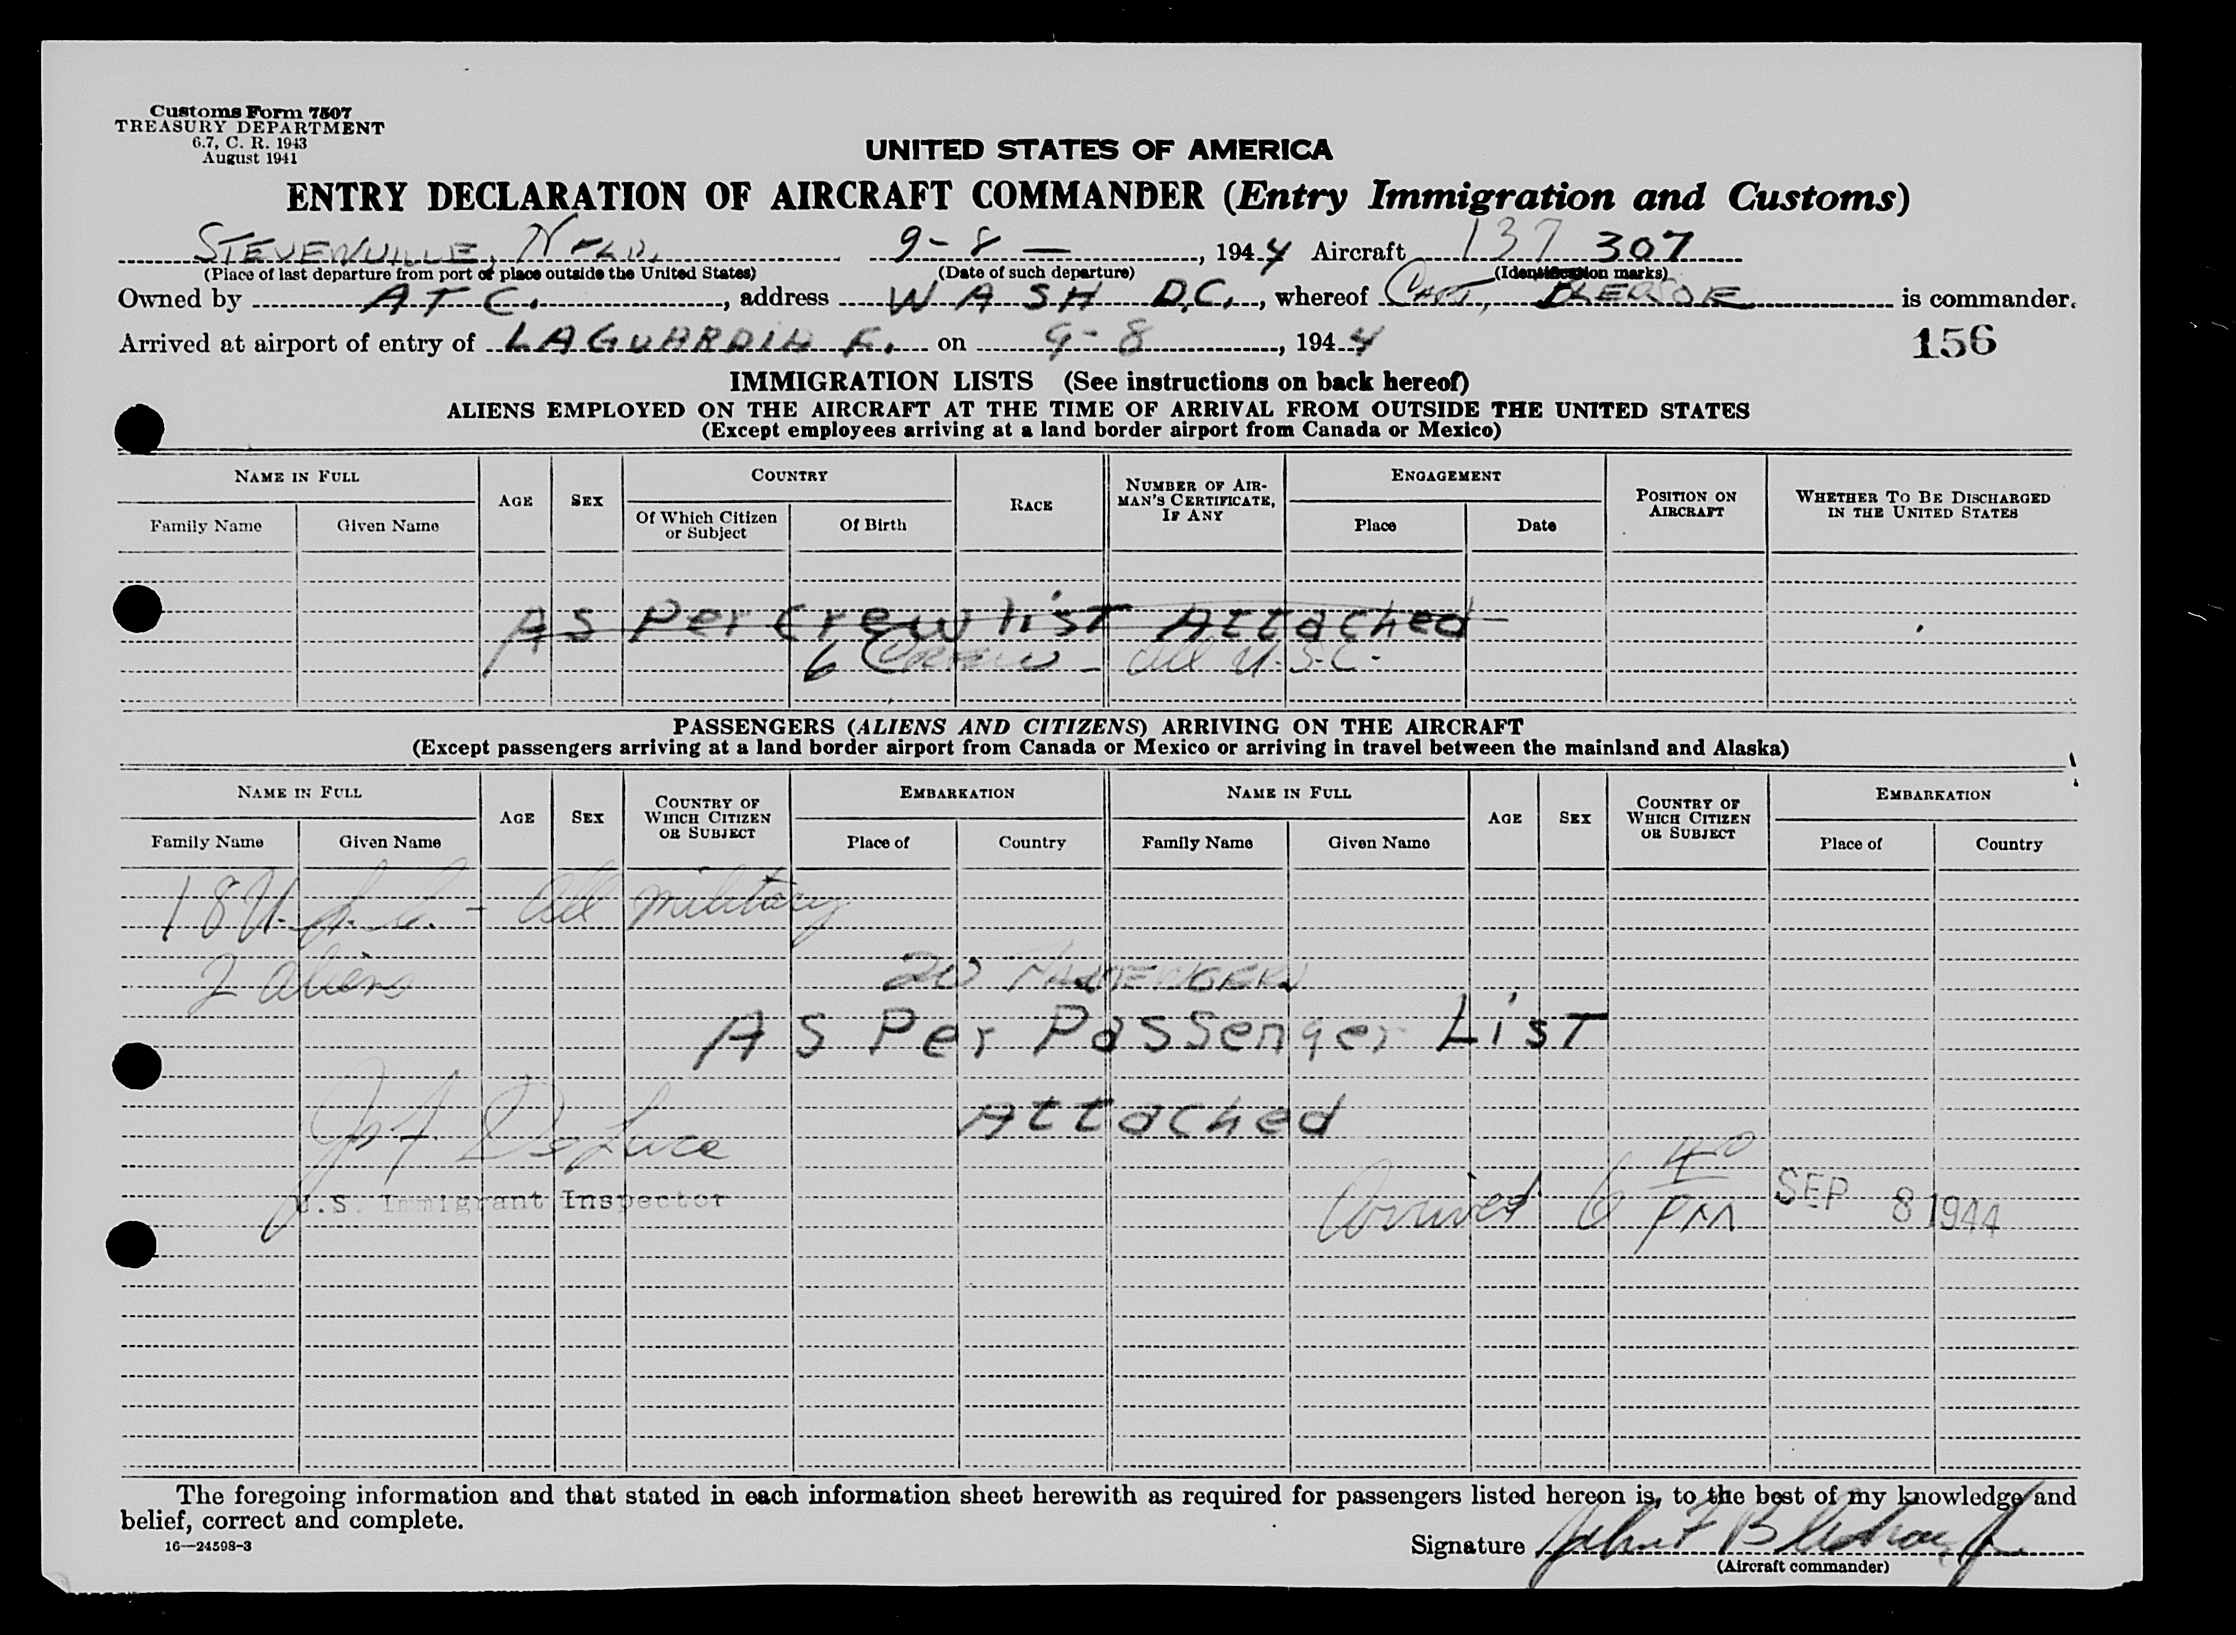 Customs Form 7507
TREASURY DEPARTMENT
6.7, C. R. 1943
August 1941
UNITED STATES OF AMERICA
ENTRY DECLARATION OF AIRCRAFT COMMANDER (Entry Immigration and Customs)
STEVENVILLE, NFLD. 9-8-, 1944 Aircraft 137 307
(Place of last departure from port or place outside the United States) (Date of such departure) (Identification marks)
Owned by A T C., address WASH D.C., whereof CAPT. BLEDSOE is commander.
Arrived at airport of entry of LAGUARDIA F. on 9-8, 1944
156
IMMIGRATION LISTS (See instructions on back hereof)
ALIENS EMPLOYED ON THE AIRCRAFT AT THE TIME OF ARRIVAL FROM OUTSIDE THE UNITED STATES
(Except employees arriving at a land border airport from Canada or Mexico)
NAME IN FULL AGE SEX COUNTRY RACE NUMBER OF AIRMAN'S CERTIFICATE, IF ANY ENGAGEMENT POSITION ON AIRCRAFT WHETHER TO BE DISCHARGED IN THE UNITED STATES
Family Name Given Name Of Which Citizen or Subject Of Birth Place Date
As Per Crew list Attached
6 Crew - All U.S.C.
PASSENGERS (ALIENS AND CITIZENS) ARRIVING ON THE AIRCRAFT
(Except passengers arriving at a land border airport from Canada or Mexico or arriving in travel between the mainland and Alaska)
NAME IN FULL AGE SEX COUNTRY OF WHICH CITIZEN OR SUBJECT EMBARKATION NAME IN FULL AGE SEX COUNTRY OF WHICH CITIZEN OR SUBJECT EMBARKATION
Family Name Given Name Place of Country Family Name Given Name Place of Country
18 U.S.C. - All military
2 aliens
20 PASSENGERS
As Per Passenger List
Attached
De Luca
U.S. Immigrant Inspector
Arrived 6 40 PM SEP 8 1944
The foregoing information and that stated in each information sheet herewith as required for passengers listed hereon is, to the best of my knowledge and
belief, correct and complete.
16—24598-3
Signature John F Bledsoe, Jr
(Aircraft commander)